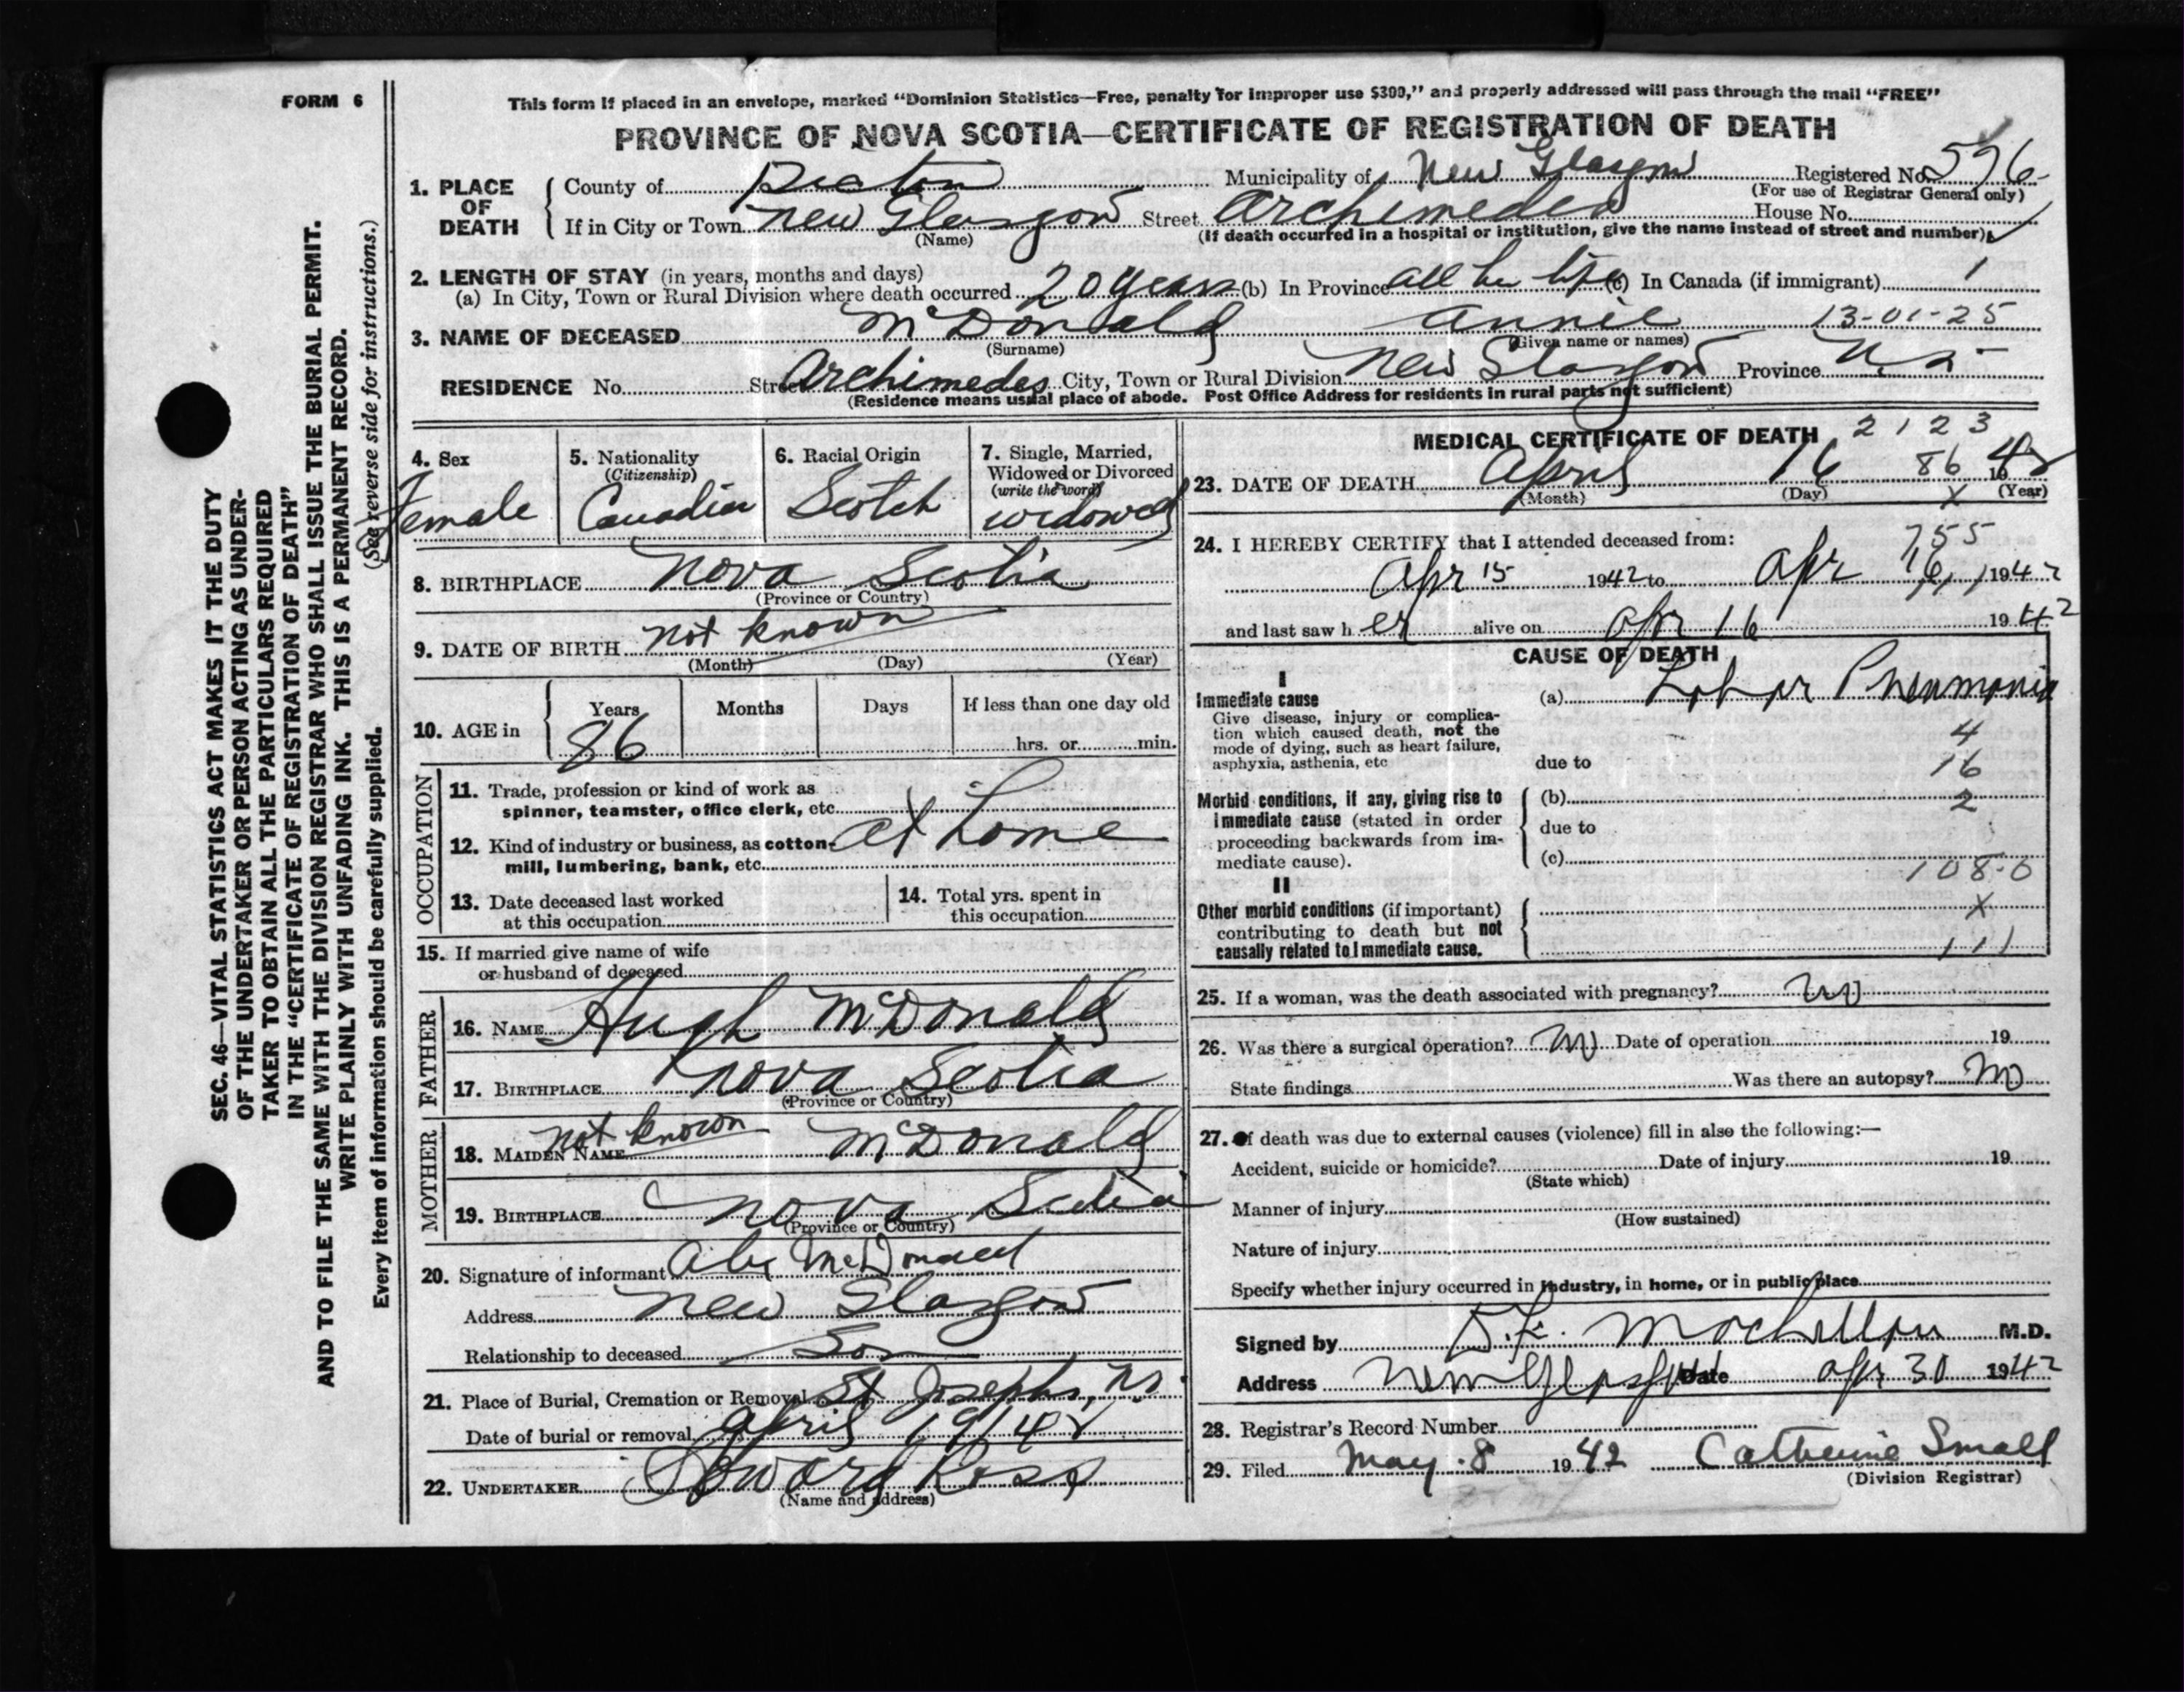 FORM 6
This form if placed in an envelope, marked “Dominion Statistics—Free, penalty for improper use $300,” and properly addressed will pass through the mail “FREE”
PROVINCE OF NOVA SCOTIA—CERTIFICATE OF REGISTRATION OF DEATH
SEC. 46—VITAL STATISTICS ACT MAKES IT THE DUTY
OF THE UNDERTAKER OR PERSON ACTING AS UNDER-
TAKER TO OBTAIN ALL THE PARTICULARS REQUIRED
IN THE “CERTIFICATE OF REGISTRATION OF DEATH”
AND TO FILE THE SAME WITH THE DIVISION REGISTRAR WHO SHALL ISSUE THE BURIAL PERMIT.
WRITE PLAINLY WITH UNFADING INK. THIS IS A PERMANENT RECORD.
Every item of information should be carefully supplied. (See reverse side for instructions.)
1. PLACE OF DEATH County of Pictou Municipality of New Glasgow Registered No. 576
(For use of Registrar General only)
If in City or Town New Glasgow Street Archimedes House No.
(Name) (If death occurred in a hospital or institution, give the name instead of street and number)
2. LENGTH OF STAY (in years, months and days)
(a) In City, Town or Rural Division where death occurred 20 years (b) In Province all her life (c) In Canada (if immigrant) 1
3. NAME OF DECEASED McDonald Annie 13-01-25
(Surname) (Given name or names)
RESIDENCE No. Street Archimedes City, Town or Rural Division New Glasgow Province N.S.
(Residence means usual place of abode. Post Office Address for residents in rural parts not sufficient)
4. Sex Female
5. Nationality (Citizenship) Canadian
6. Racial Origin Scotch
7. Single, Married, Widowed or Divorced (write the word) widowed
8. BIRTHPLACE Nova Scotia
(Province or Country)
9. DATE OF BIRTH not known
(Month) (Day) (Year)
10. AGE in Years Months Days If less than one day old
86 hrs. or min.
OCCUPATION
11. Trade, profession or kind of work as
spinner, teamster, office clerk, etc.
at home
12. Kind of industry or business, as cotton-
mill, lumbering, bank, etc.
13. Date deceased last worked
at this occupation
14. Total yrs. spent in
this occupation
15. If married give name of wife
or husband of deceased
FATHER
16. NAME Hugh McDonald
17. BIRTHPLACE Nova Scotia
(Province or Country)
MOTHER
18. MAIDEN NAME not known McDonald
19. BIRTHPLACE Nova Scotia
(Province or Country)
20. Signature of informant Alex McDonald
Address New Glasgow
Relationship to deceased Son
21. Place of Burial, Cremation or Removal St Josephs, N.S.
Date of burial or removal April 19/42
22. UNDERTAKER Howard Ross
(Name and address)
MEDICAL CERTIFICATE OF DEATH 2123
86
23. DATE OF DEATH April 16 1942
(Month) (Day) X (Year)
24. I HEREBY CERTIFY that I attended deceased from: 755
Apr 15 1942 to Apr 16, 1942
and last saw h er alive on Apr 16 1942
CAUSE OF DEATH
I
Immediate cause (a) Lobar Pneumonia
Give disease, injury or complica-
tion which caused death, not the
mode of dying, such as heart failure,
asphyxia, asthenia, etc
4
due to 16
Morbid conditions, if any, giving rise to
immediate cause (stated in order
proceeding backwards from im-
mediate cause).
(b) 2
due to
(c)
108.0
II
Other morbid conditions (if important)
contributing to death but not
causally related to immediate cause.
X
111
25. If a woman, was the death associated with pregnancy? no
26. Was there a surgical operation? no Date of operation 19
State findings Was there an autopsy? no
27. If death was due to external causes (violence) fill in also the following:—
Accident, suicide or homicide? Date of injury 19
(State which)
Manner of injury
(How sustained)
Nature of injury
Specify whether injury occurred in industry, in home, or in public place
Signed by M.D.
Address New Glasgow Date Apr 30 1942
28. Registrar's Record Number
29. Filed May 8 1942 Catherine Small
(Division Registrar)